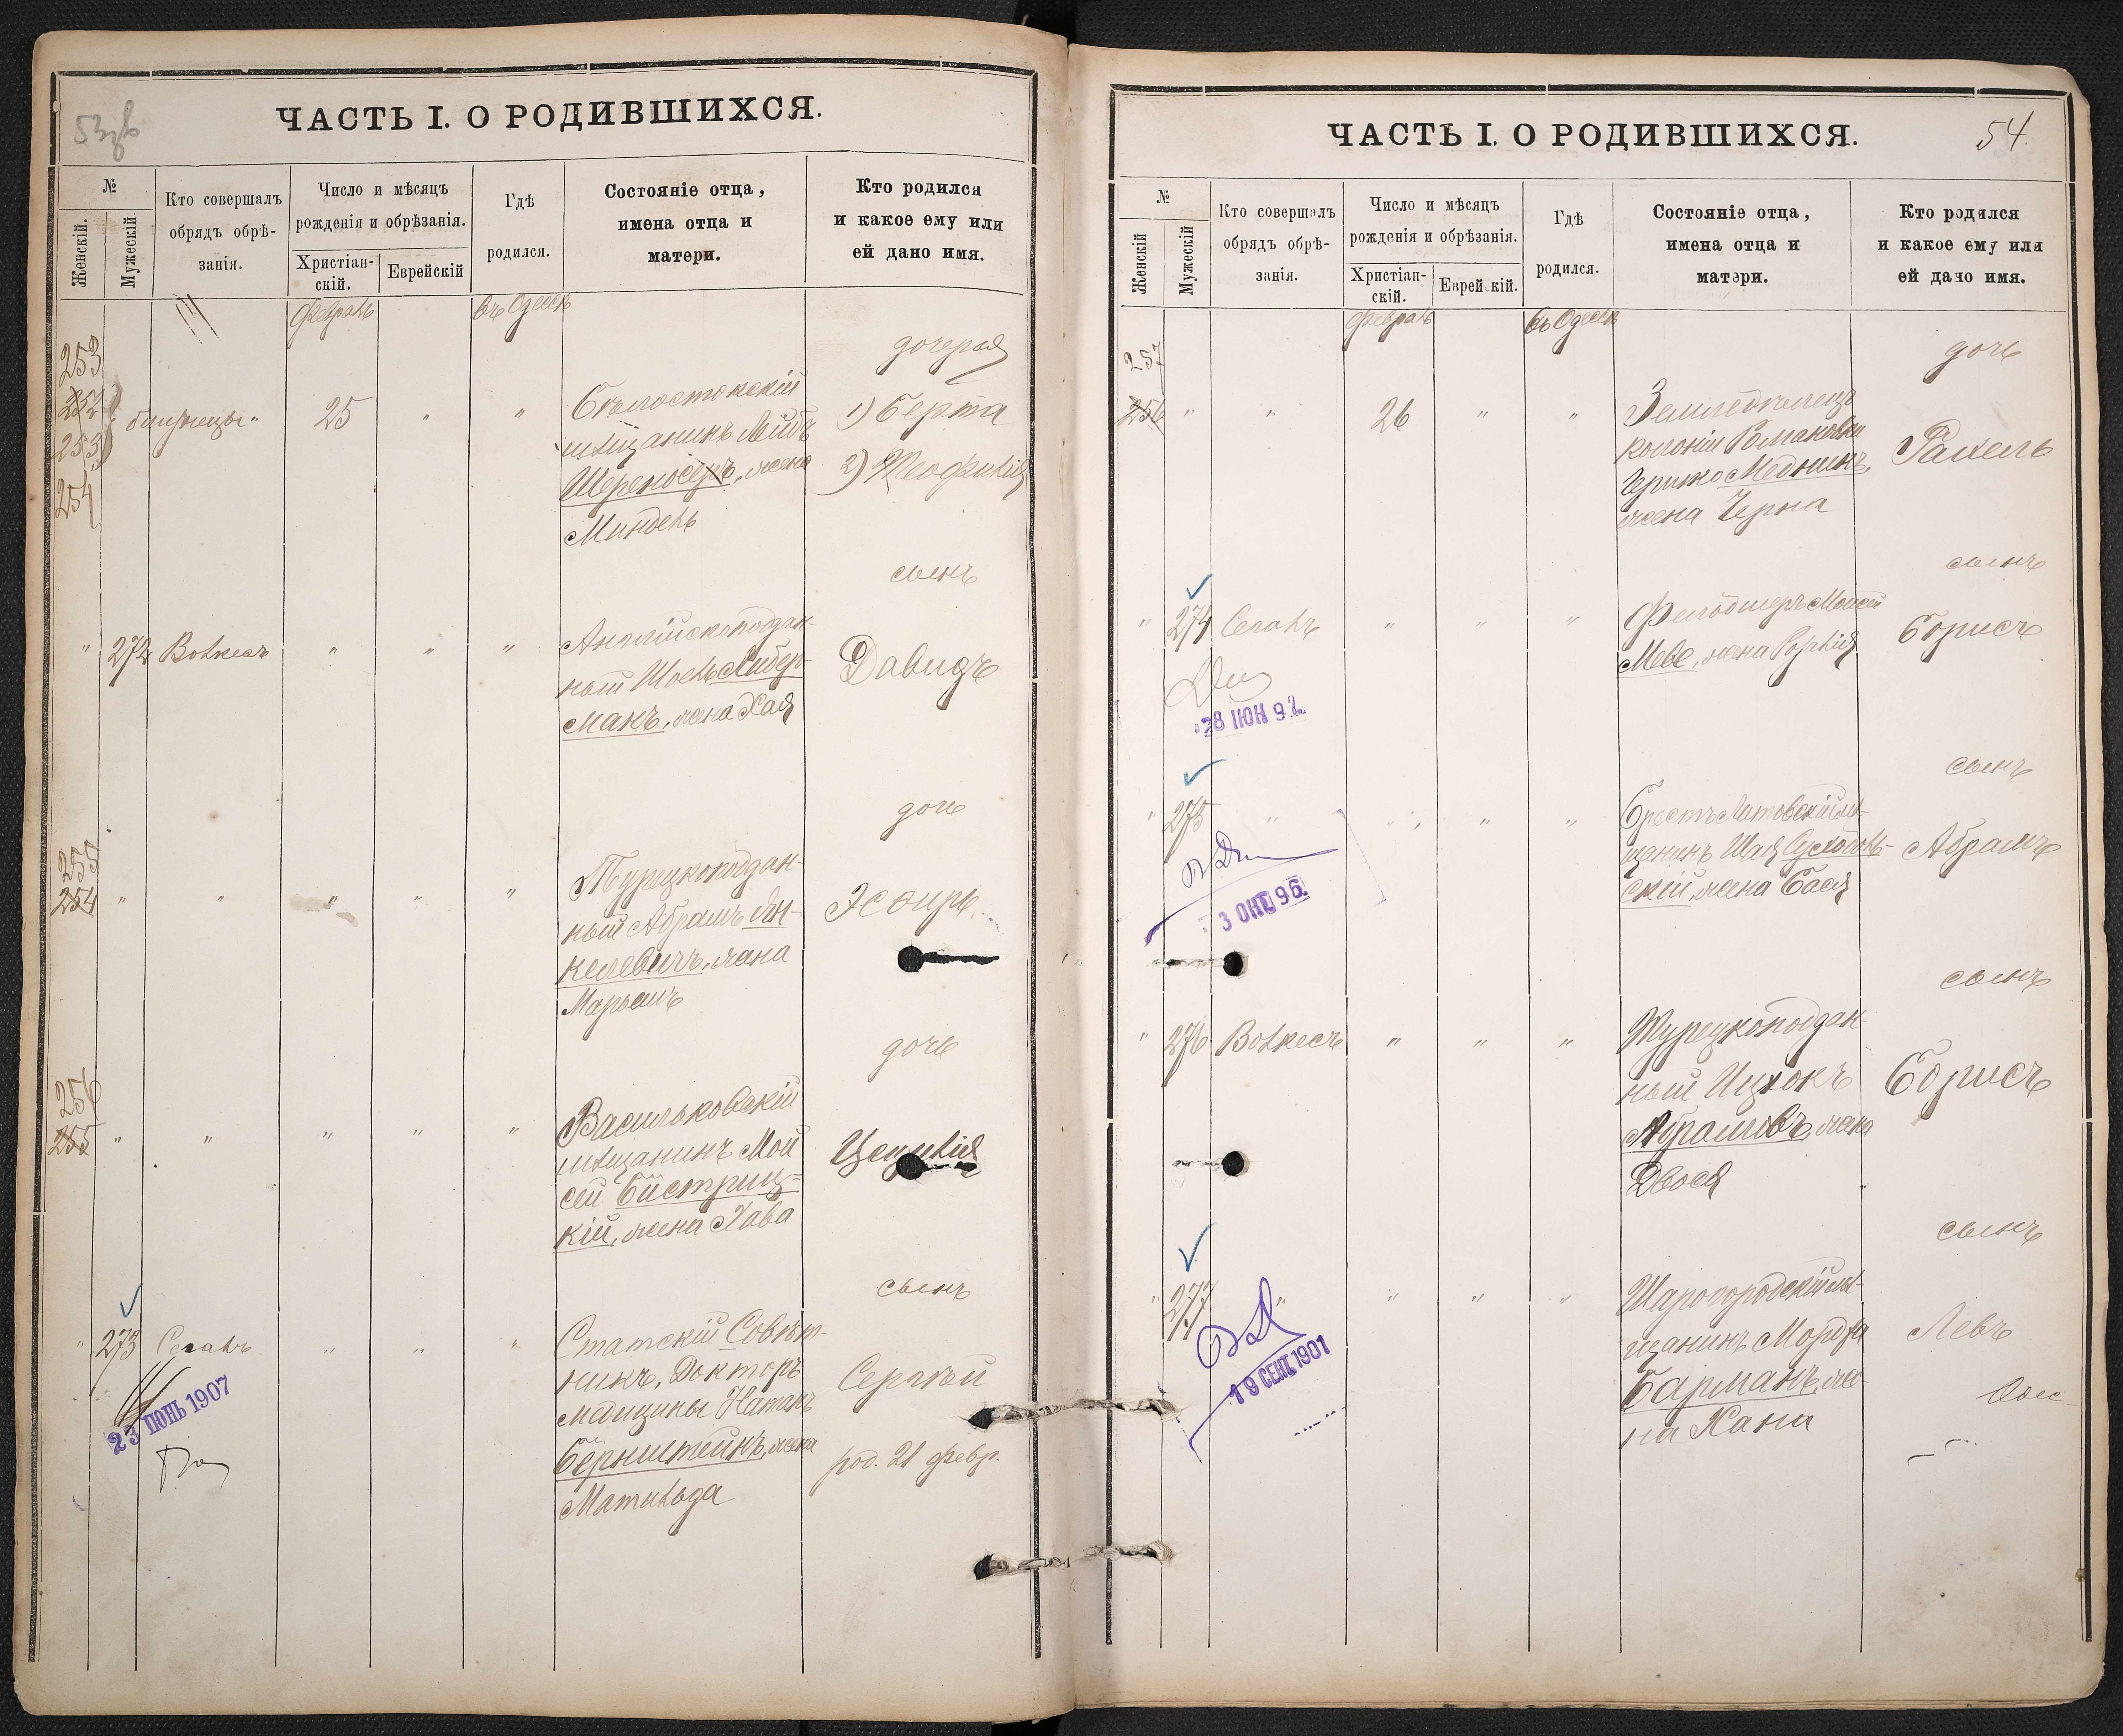 ЧАСТЬ I. О РОДИВШИХСЯ.
№
Женскій.
Мужескій
Кто совершалъ
обрядъ обрѣ-
занія.
Число и мѣсяцъ
рожденія и обрѣзанія.
Христіан-
скій.
Еврейскій
Гдѣ
родился.
Состояніе отца,
имена отца и
матери.
Кто родился
и какое ему или
ей дано имя.
Февраль
въ Одессѣ
253
252
253
254
близнецы
"
25
"
"
Бѣлостокскій
мѣщанинъ Лейбъ
жена
Миндель
дочерья
1) Берта
2) Теофилія
"
272
Волкесъ
"
"
"
Англійскоподдан-
ный Шоель Либер-
манъ, жена Хая
сынъ
Давидъ
255
254
"
"
"
"
"
Турецкоподдан-
ный Абрамъ Ян-
келевичъ, жена
Марьемъ
дочь
Эсѳирь
256
255
"
"
"
"
"
Васильковскій
мѣщанинъ Мой
сей Быстриц-
кій, жена Хава
дочь
Цецилія
"
273
Сегалъ
"
"
"
Статскій Совѣт-
никъ, Докторъ
медицины Натанъ
Бернштейнъ, жена
Матильда
сынъ
Сергѣй
род. 21 февр.
23 ІЮНЬ 1907
ЧАСТЬ I. О РОДИВШИХСЯ.
54.
№
Женскій
Мужескій
Кто совершалъ
обрядъ обрѣ-
занія.
Число и мѣсяцъ
рожденія и обрѣзанія.
Христіан-
скій.
Еврейскій.
Гдѣ
родился.
Состояніе отца,
имена отца и
матери.
Кто родился
и какое ему или
ей дано имя.
Февраль
въ Одессѣ
257
256
"
"
26
"
"
Земледѣлецъ
колоніи Романовки
Гершко Медникъ,
жена Черна
дочь
Рахель
"
274
Сегалъ
"
"
"
Фельдшеръ Моисей
Меве, жена Рахиля
сынъ
Борисъ
28 ІЮН 97.
"
275
"
"
"
"
Брестъ-Литовскій мѣ-
щанинъ Шая
скій, жена Бася
сынъ
Абрамъ
3 ОКТ 96.
"
276
Волкесъ
"
"
"
Турецкоподдан-
ный Ицхокъ
Абрамовъ, жена
Двося
сынъ
Борисъ
"
277
"
"
"
"
Шарогородскій мѣ-
щанинъ Мордха
Барманъ, же-
на Хана
сынъ
Левъ
19 СЕНТ. 1901